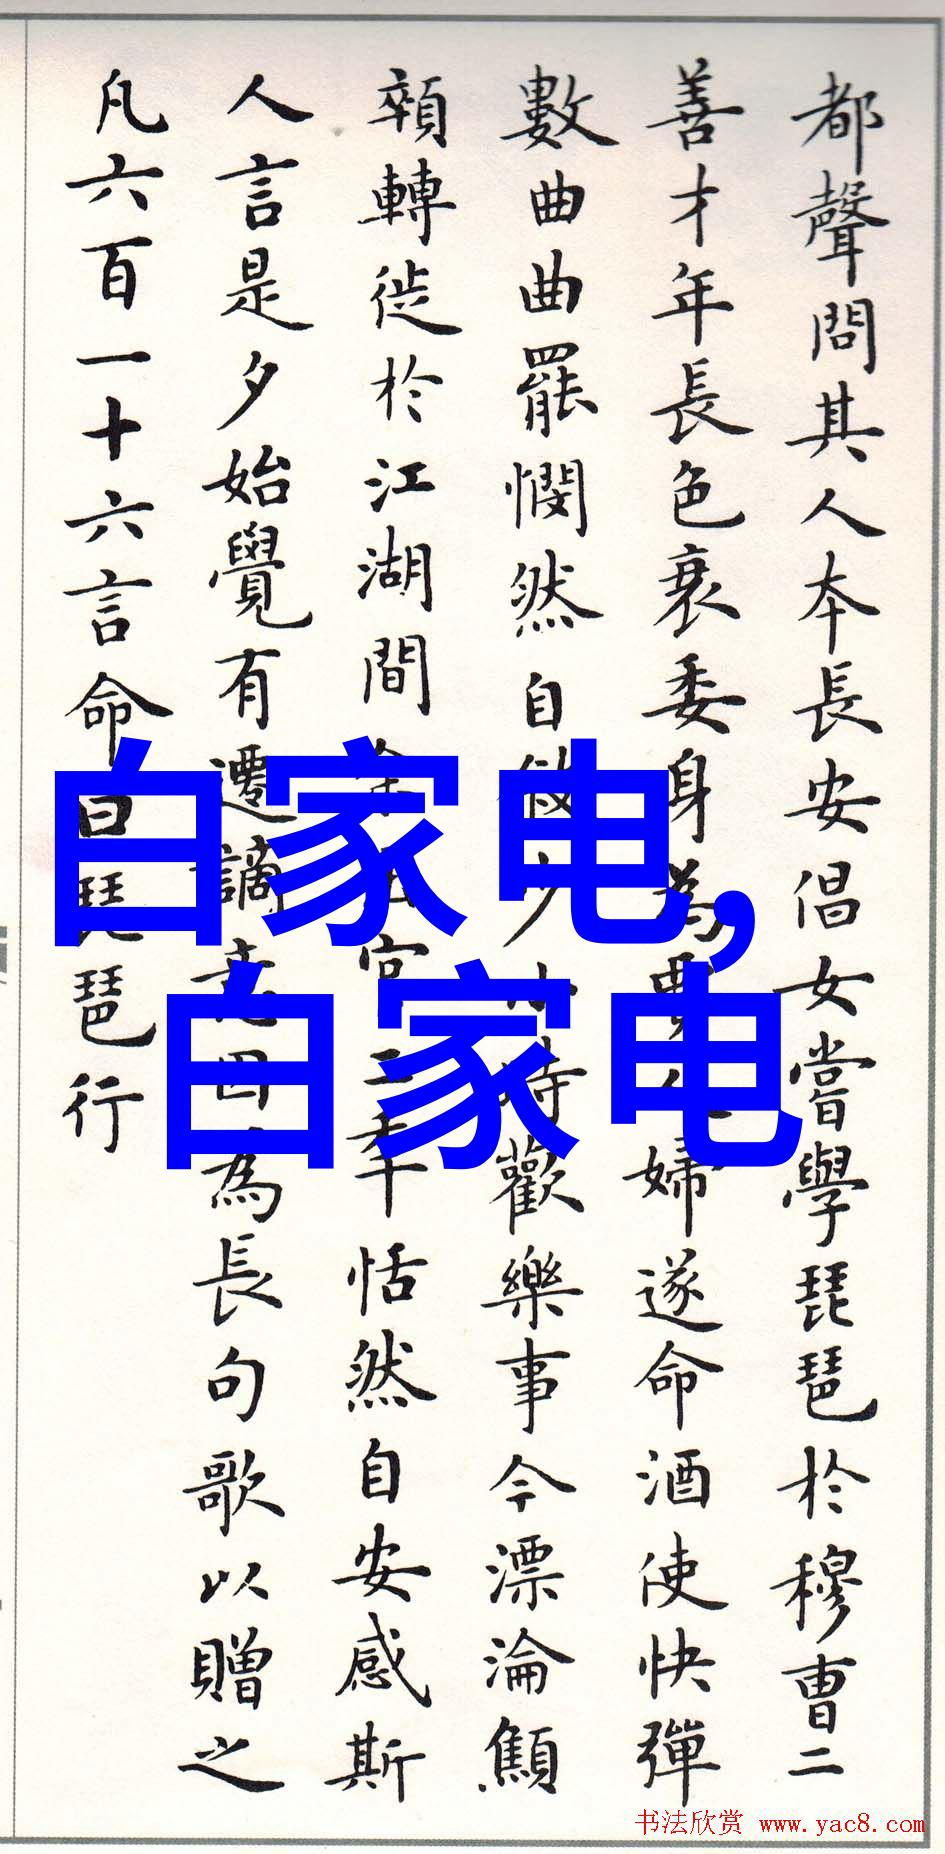 都聲問其人本長安倡女嘗學琵琶於穆曹二
善才年長色衰委身為賈人婦遂命酒使快彈
數曲曲罷憫然自敘少小時歡樂事今漂淪顦
顇轉徙於江湖間官二年恬然自安感斯
人言是夕始覺有遷謫意因為長句歌以贈之
凡六百一十六言命曰琵琶行
白家电,
白家电
书法欣赏 www.yac8.com